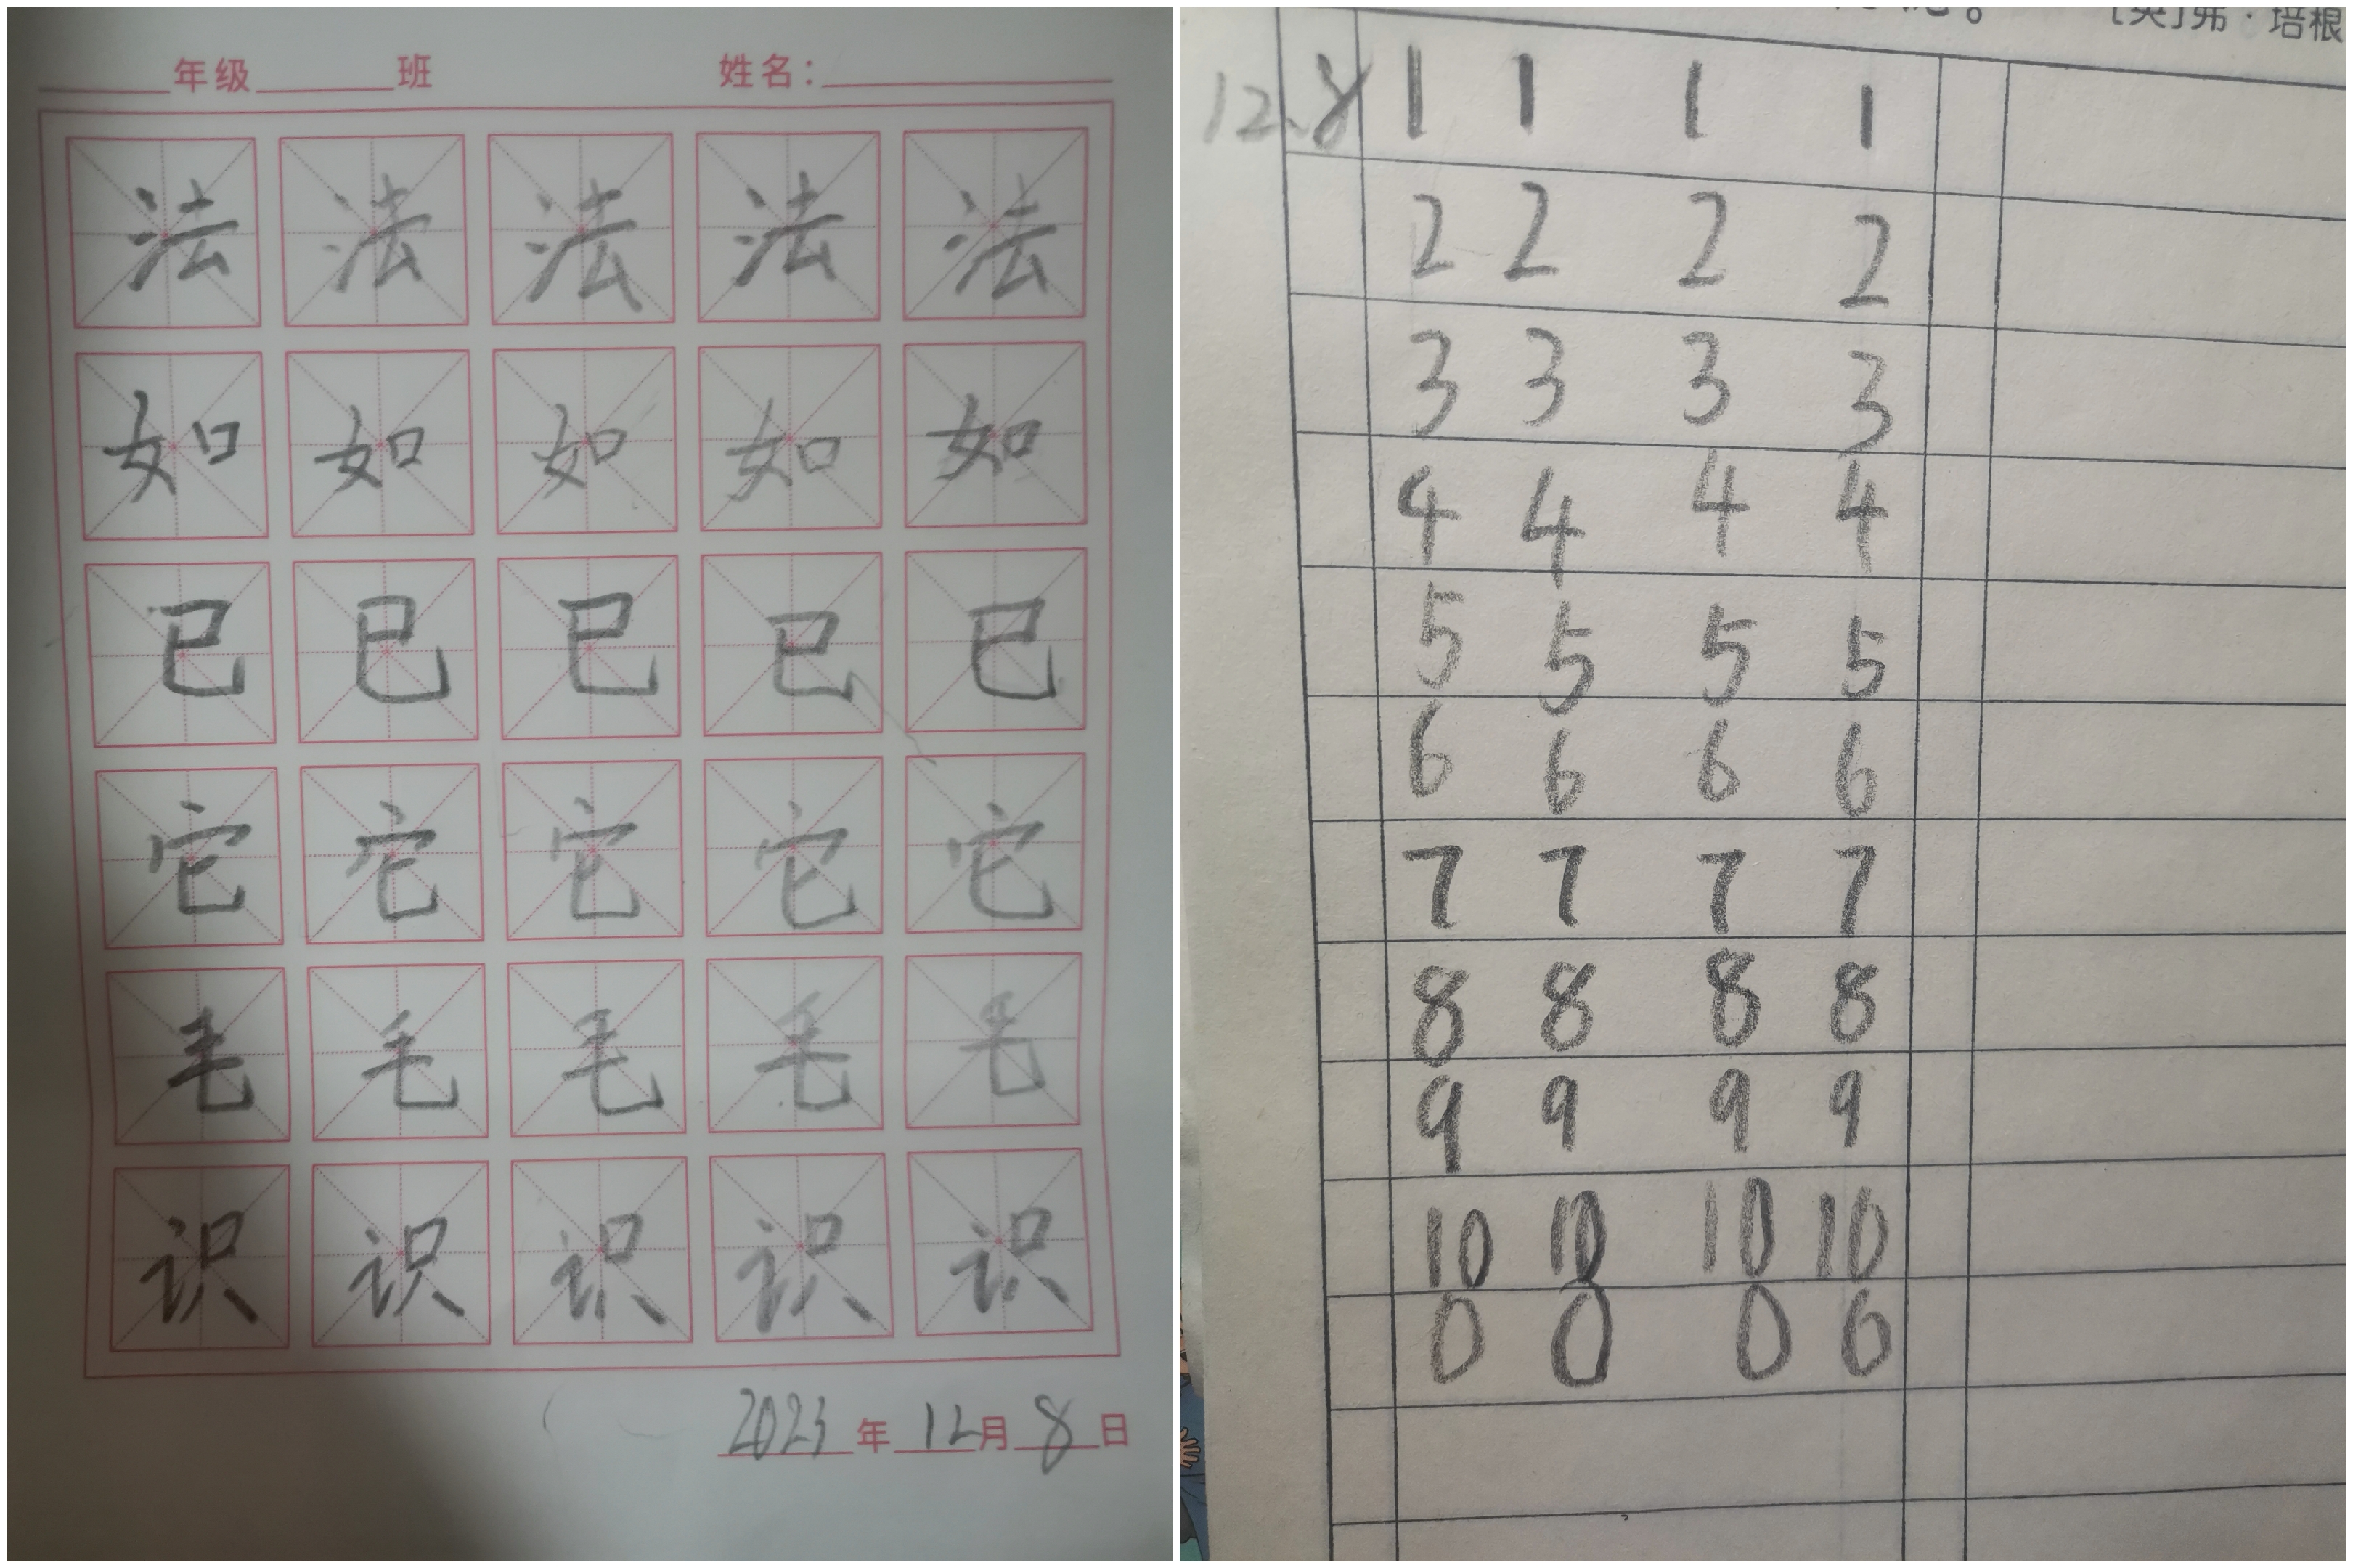 年级 班 姓名：
法 法 法 法 法
如 如 如 如 如
已 已 已 已 已
它 它 它 它 它
毛 毛 毛 毛 毛
识 识 识 识 识
2023年12月8日
[英]弗·培根
12.8 1 1 1 1
2 2 2 2
3 3 3 3
4 4 4 4
5 5 5 5
6 6 6 6
7 7 7 7
8 8 8 8
9 9 9 9
10 10 10 10
0 0 0 0